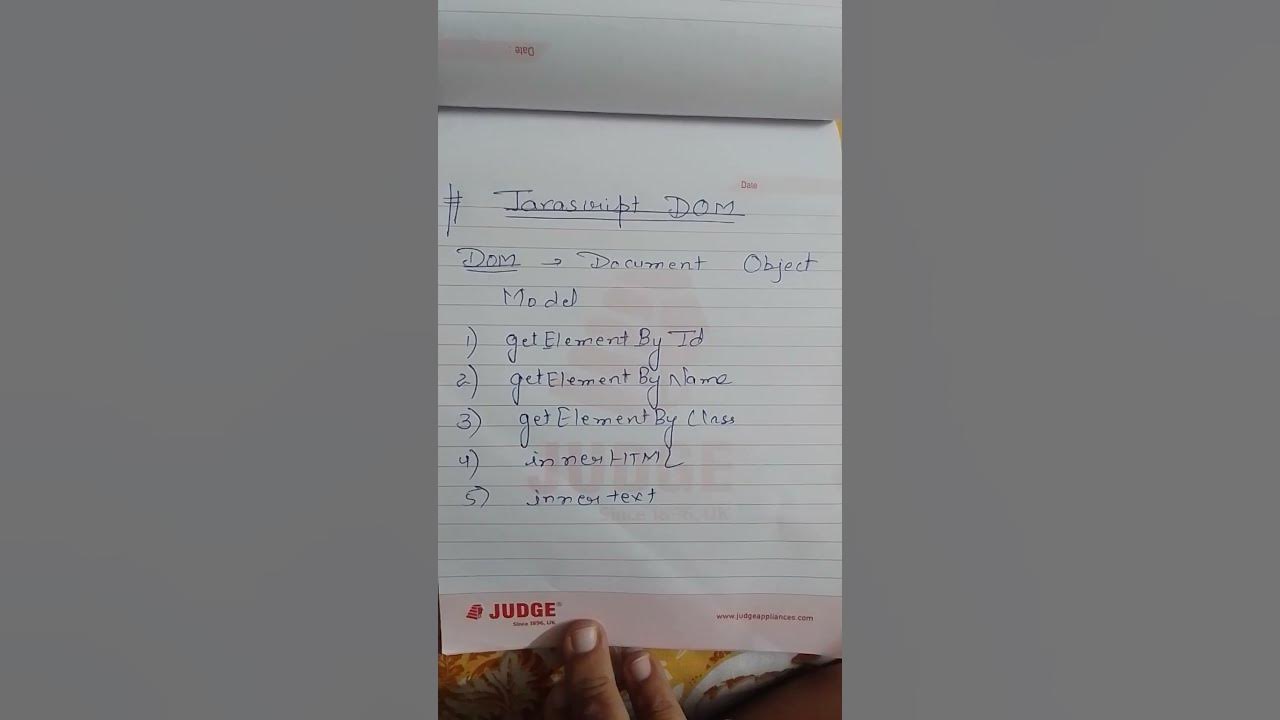 Date
Date
# Javascript DOM
DOM → Document Object
Model
1) getElementById
2) getElementByName
3) getElementByClass
4) innerHTML
5) innertext
JUDGE
Since 1896, UK
JUDGE®
Since 1896, UK
www.judgeappliances.com